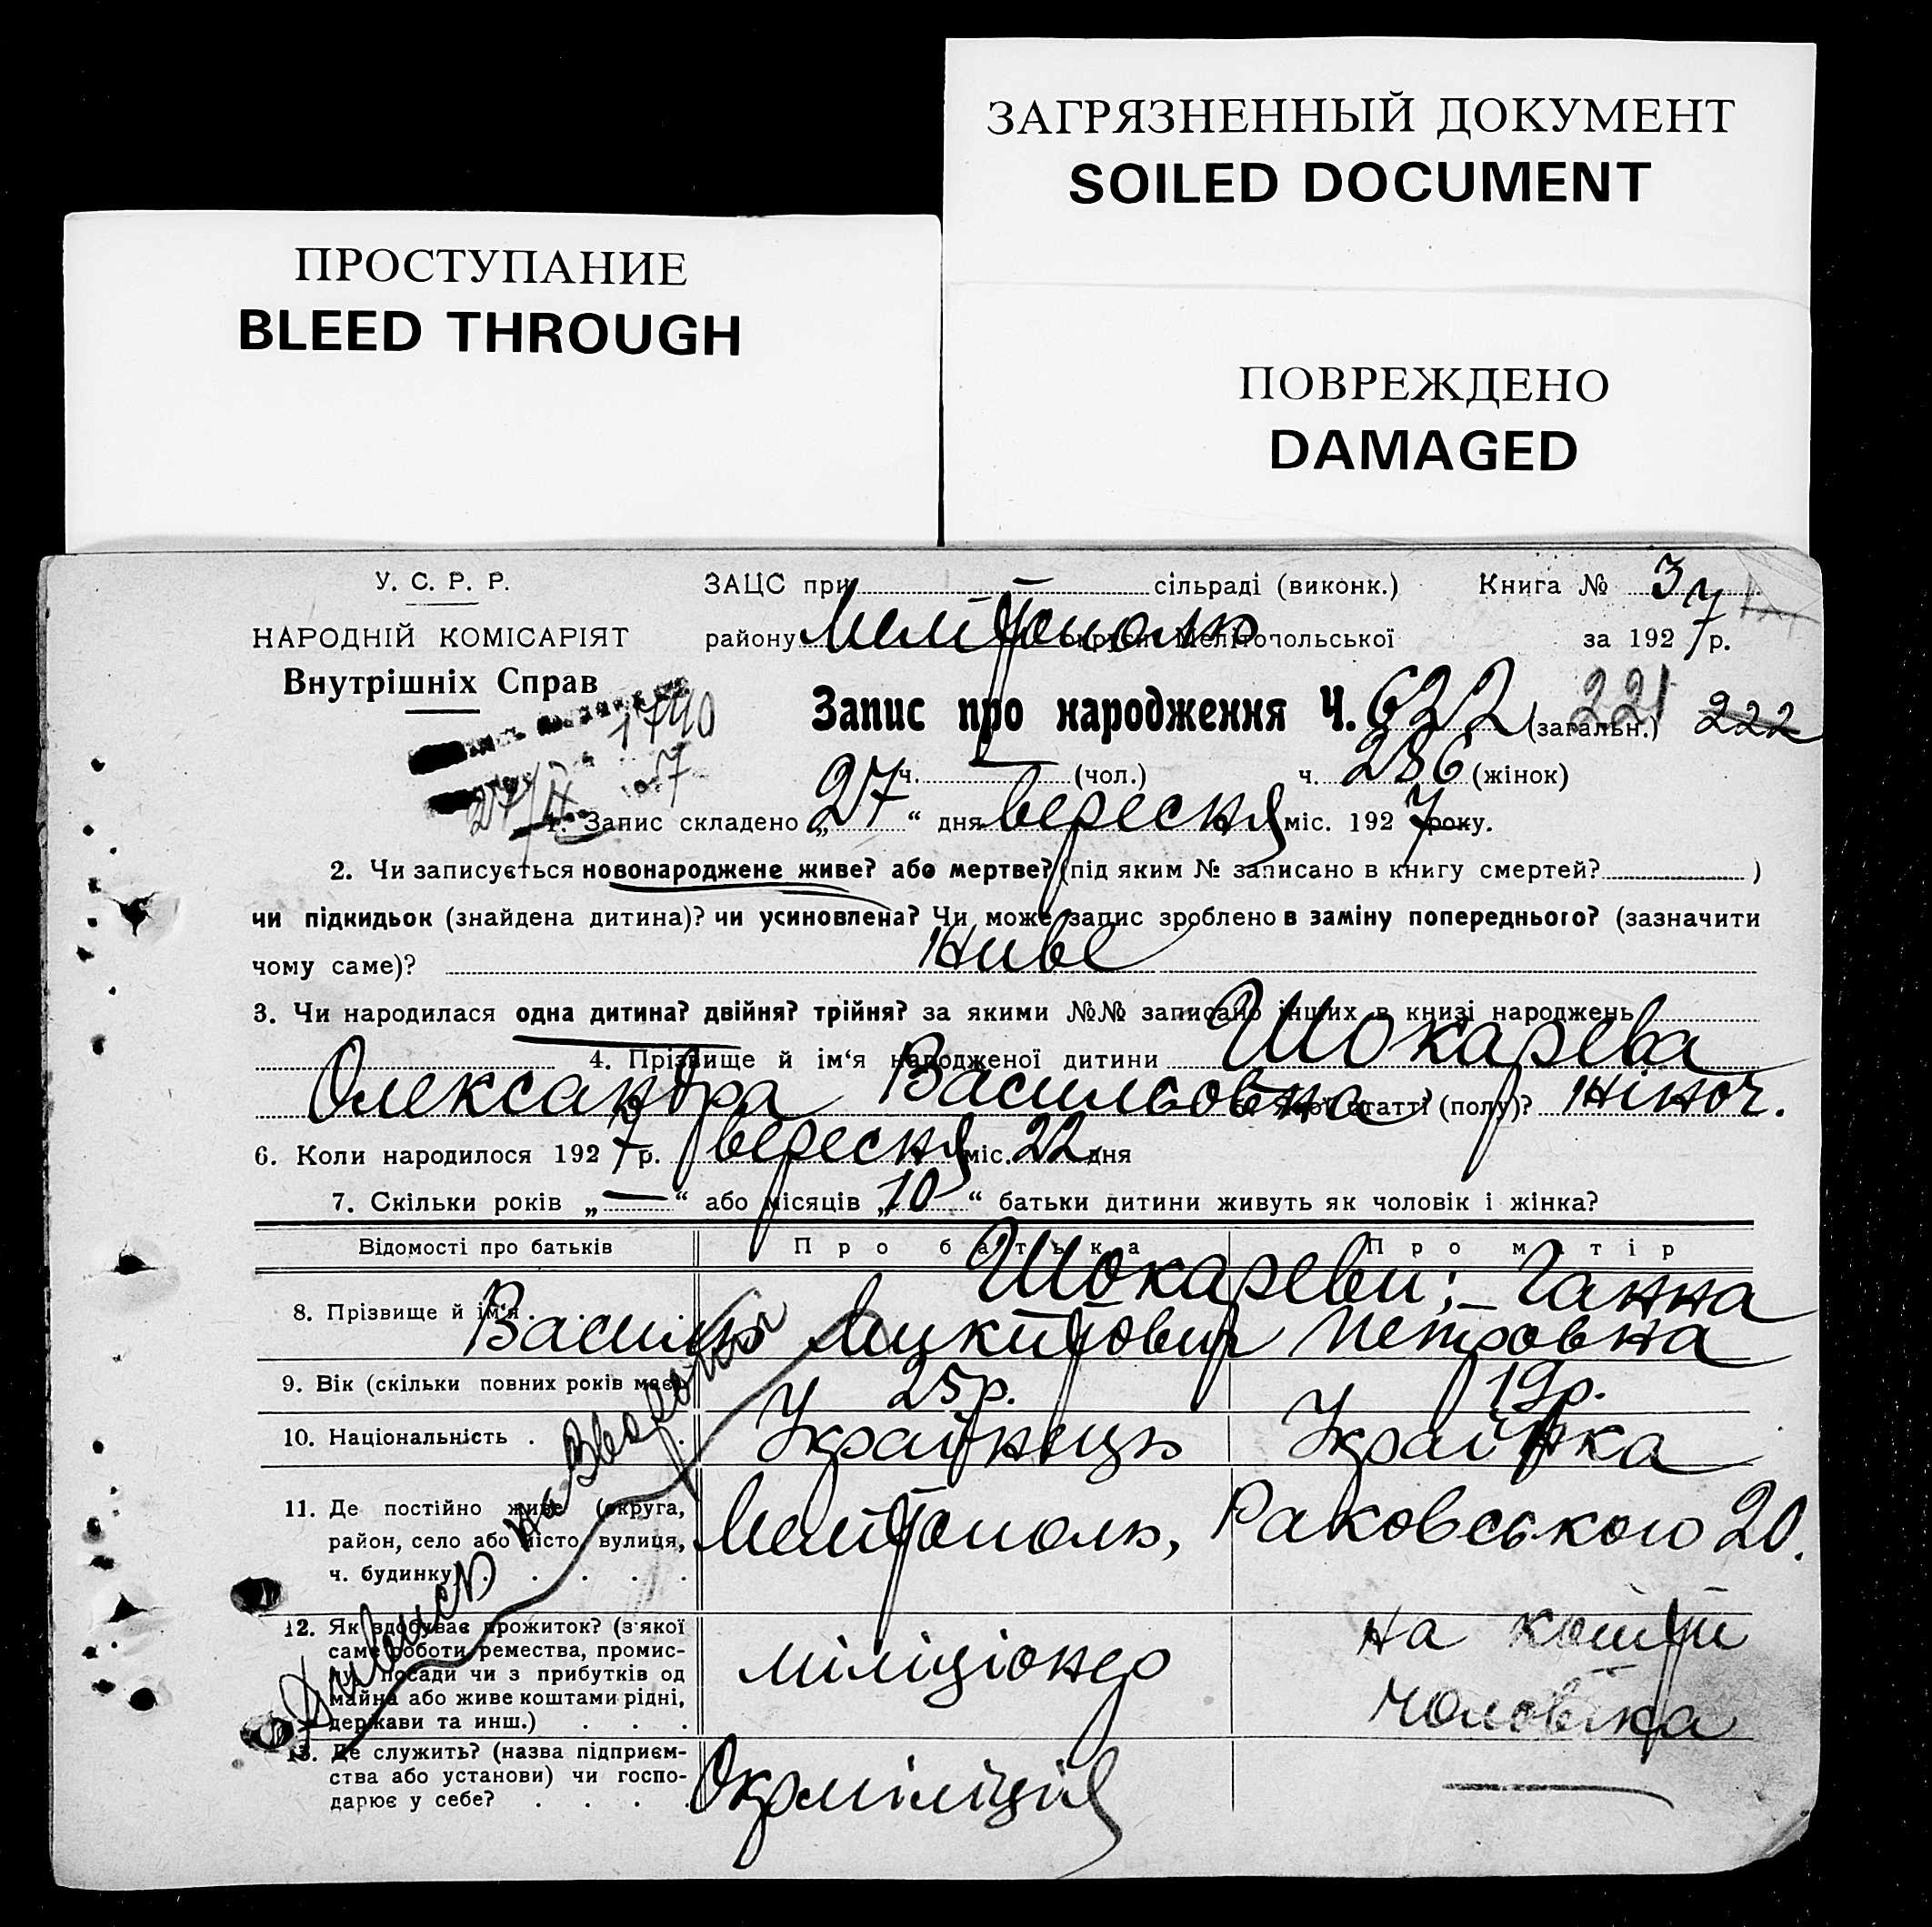 ЗАГРЯЗНЕННЫЙ ДОКУМЕНТ
SOILED DOCUMENT
ПРОСТУПАНИЕ
BLEED THROUGH
ПОВРЕЖДЕНО
DAMAGED
У. С. Р. Р.
НАРОДНІЙ КОМІСАРІЯТ
Внутрішніх Справ
ЗАЦС при сільраді (виконк.) Книга № 3
району Мелітополь округи Мелітопольської за 1927 р.
1740
27/IX 7
Запис про народження Ч. 622 (загальн.) 221 222
ч. — (чол.) ч. 286 (жінок)
1. Запис складено „27“ дня вересня міс. 1927 року.
2. Чи записується новонароджене живе? або мертве? (під яким № записано в книгу смертей? )
чи підкидьок (знайдена дитина)? чи усиновлена? Чи може запис зроблено в заміну попереднього? (зазначити
чому саме)? живе
3. Чи народилася одна дитина? двійня? трійня? за якими №№ записано інших в книзі народжень
4. Прізвище й ім‘я народженої дитини Шокарева
Олександра Васильовна статті (полу)? жіноч.
6. Коли народилося 1927 р. вересня міс. 22 дня
7. Скільки років „—“ або місяців „10“ батьки дитини живуть як чоловік і жінка?
Відомості про батьків Про батька Про матір
8. Прізвище й ім‘я Шокареви: Ганна
Василь Микитович Петровна
9. Вік (скільки повних років має) 25р. 19р.
10. Національність Українець Українка
11. Де постійно живе (округа,
район, село або місто, вулиця,
ч. будинку) Мелітополь, Раковського 20.
12. Як здобуває прожиток? (з якої
саме роботи, ремества, промис-
лу, посади чи з прибутків од
майна або живе коштами рідні,
держави та инш.) міліціонер на кошти
чоловіка
13. Де служить? (назва підприєм-
ства або установи) чи госпо-
дарює у себе? Окрміліція —